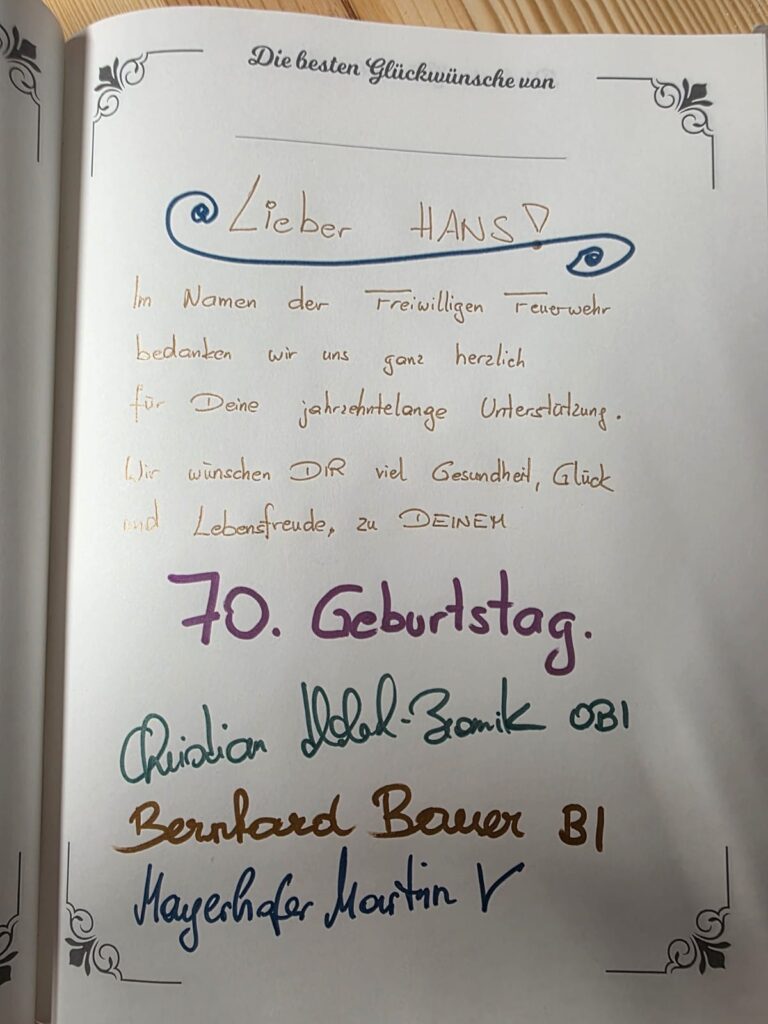 Die besten Glückwünsche von
Lieber HANS!
Im Namen der Freiwilligen Feuerwehr
bedanken wir uns ganz herzlich
für Deine jahrzehntelange Unterstützung.
Wir wünschen DIR viel Gesundheit, Glück
und Lebensfreude, zu DEINEM
70. Geburtstag.
Christian OBI
Bernhard Bauer BI
Mayerhofer Martin V